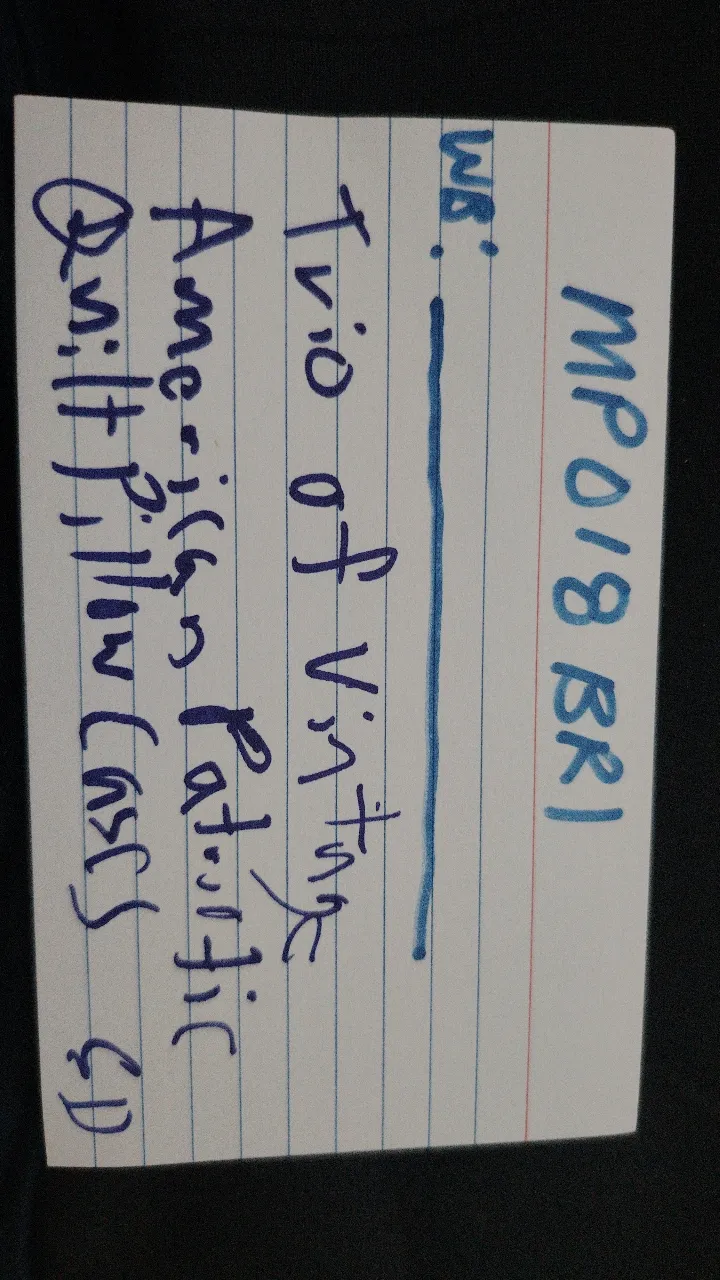 MP018BR1
WB:
Trio of Vintage
American Patriotic
Quilt Pillow Cases